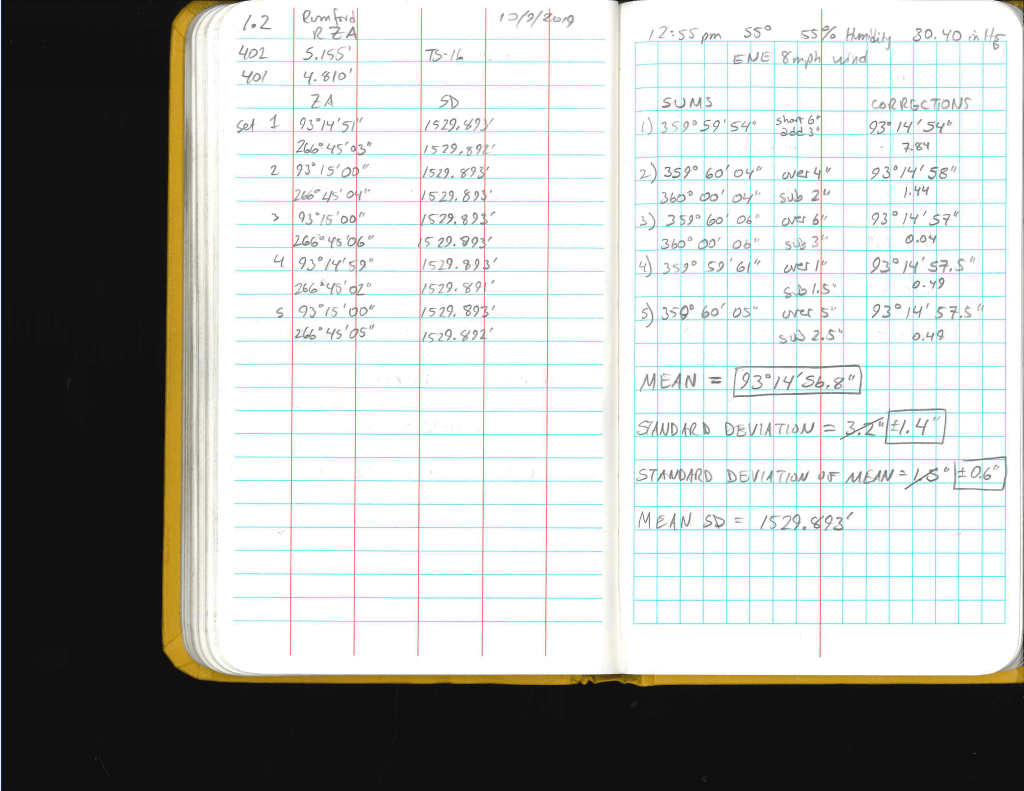 1.2 Rumford 10/9/2019
RZA
402 5.155' TS-16
401 4.810'
ZA SD
set 1 93°14'51" 1529.893'
266°45'03" 1529.892'
2 93°15'00" 1529.893'
266°45'04" 1529.893'
3 93°15'00" 1529.893'
266°45'06" 1529.893'
4 93°14'59" 1529.893'
266°45'02" 1529.891'
5 93°15'00" 1529.893'
266°45'05" 1529.892'
12:55pm 55° 55% Humidity 30.40 in Hg
ENE 8mph wind
SUMS CORRECTIONS
1) 359°59'54" short 6" 93°14'54"
add 3" 7.84
2) 359°60'04" over 4" 93°14'58"
360°00'04" sub 2" 1.44
3) 359°60'06" over 6" 93°14'57"
360°00'06" sub 3" 0.04
4) 359°59'61" over 1" 93°14'57.5"
sub 1.5" 0.49
5) 359°60'05" over 5" 93°14'57.5"
sub 2.5" 0.49
MEAN = 93°14'56.8"
STANDARD DEVIATION = 3.2" ±1.4"
STANDARD DEVIATION OF MEAN = 1.5" ±0.6"
MEAN SD = 1529.893'